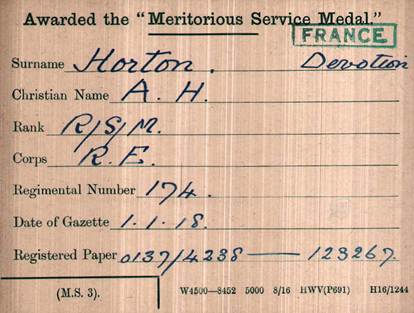 Awarded the "Meritorious Service Medal."
FRANCE
Surname Horton. Devotion
Christian Name A. H.
Rank R/S/M.
Corps R.E.
Regimental Number 174.
Date of Gazette 1.1.18.
Registered Paper 0137/4238 — 123267.
(M.S. 3). W4500—8452 5000 8/16 HWV(P691) H16/1244